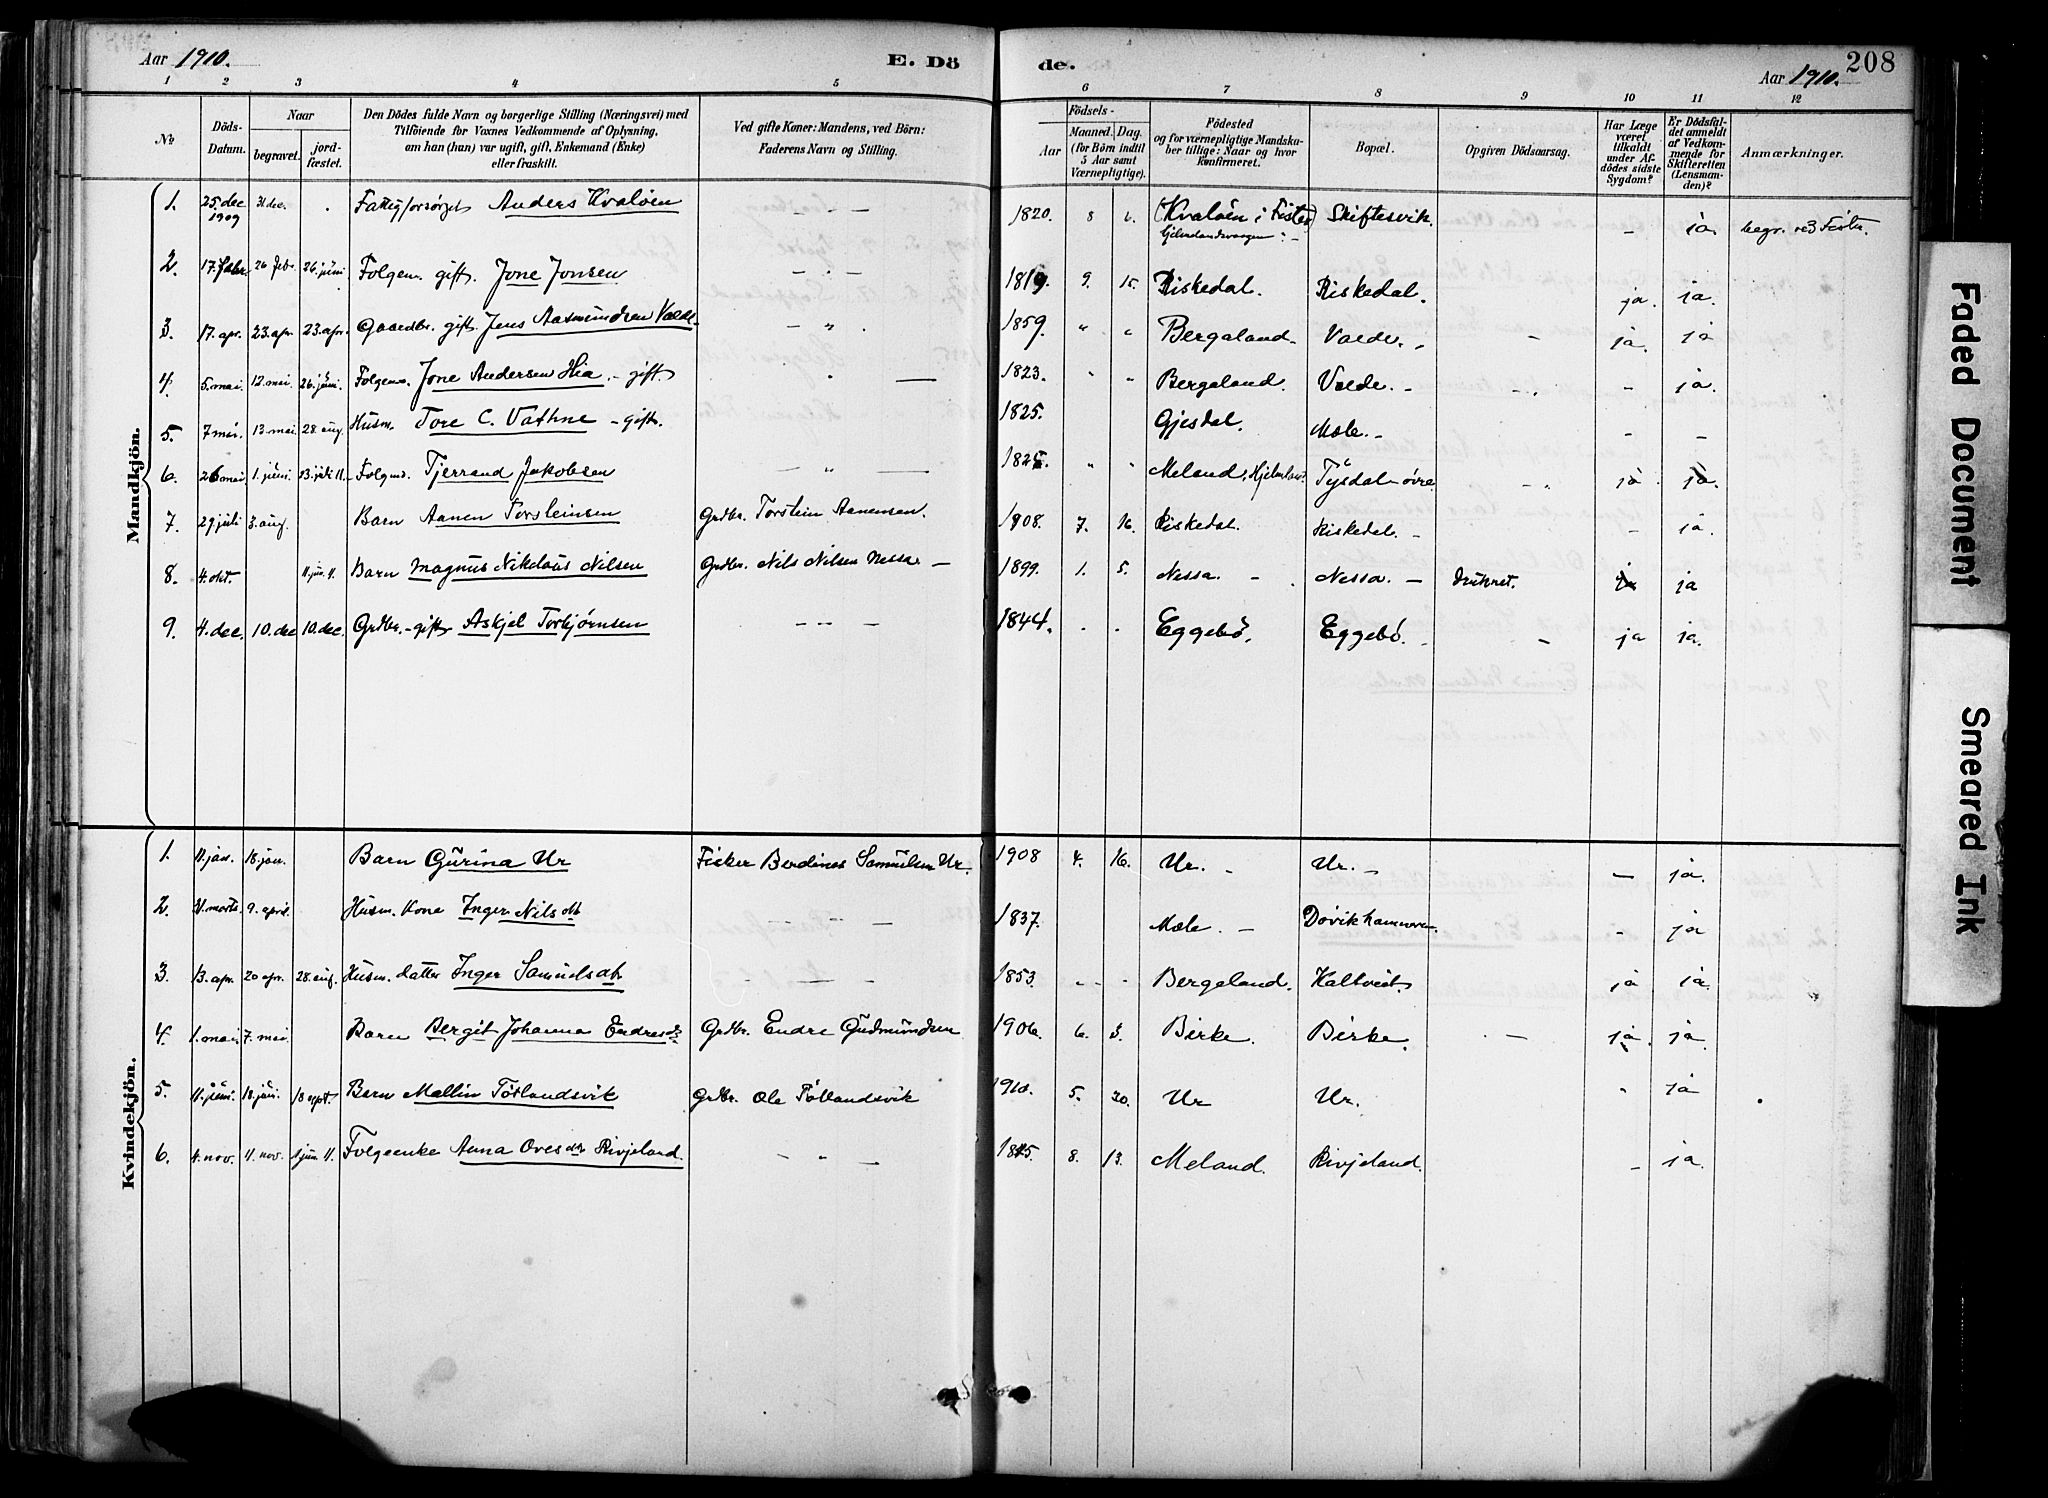 Aar 1910.
E. Dö
de.
Aar 1910.
208
1 2 3 4 5 6 7 8 9 10 11 12
No.
Döds-Datum.
Naar
begravet.
jord-fæstet.
Den Dödes fulde Navn og borgerlige Stilling (Næringsvei) med
Tilföiende for Voxnes Vedkommende af Oplysning,
om han (hun) var ugift, gift, Enkemand (Enke)
eller fraskilt.
Ved gifte Koner: Mandens, ved Börn:
Faderens Navn og Stilling.
Födsels-
Aar
Maaned. Dag.
(for Börn indtil
5 Aar samt
Værnepligtige).
Födested
og for værnepligtige Mandska-
ber tillige: Naar og hvor
konfirmeret.
Bopæl.
Opgiven Dödsaarsag.
Har Læge
været
tilkaldt
under Af-
dödes sidste
Sygdom?
Er Dödsfal-
det anmeldt
af Vedkom-
mende for
Skifteretten
(Lensman-
den)?
Anmærkninger.
Mandkjön.
1. 25. dec 1909 31 dec. Fattigforsørget Anders Kvaløen — — — 1820. 8 6. (Kvaløen i Fister) Skiftesvik. — ja. begr. ved Fister.
2. 17. febr. 26 febr. 26. juni Folgem. gift. Jone Jonsen — — 1819. 9. 15. Riskedal. Riskedal. ja. ja.
3. 17. apr. 23. apr. 23. apr. Gaardbr. gift Jens Aasmundsen Valde — " 1859. " " Bergaland. Valde. — ja. ja
4. 5. mai 12. mai. 26. juni. Folgem. Jone Andersen Hia. — gift. " — 1823. " " Bergaland. Valde. — — ja.
5. 7 mai. 13. mai. 28. aug. Husm. Tore C. Vathne — gift. 1825. Gjesdal. Mæle. — — —
6. 26 mai 1. juni. 13. juli 11. Folgmd. Tjerrand Jakobsen — " — 182 " " Meland, Hjelmeland. Tysdal øvre. — ja ja.
7. 29 juli 3. aug. Barn Aanen Torsteinsen Grdbr. Torstein Aanensen. 1908. 7. 16. Riskedal. Riskedal. — — ja.
8. 4. okt. 11. jun. 11. Barn Magnus Nikolaus Nilsen Grdbr. Nils Nilsen Nessa. — 1899. 1. 5. Nessa. — Nessa. — druknet. ja
9. 4. dec. 10. dec 10. dec. Grdbr. — gift Askjel Torbjørnsen — — — 1844. . . Eggebø. Eggebø. — ja ja.
Kvindekjön.
1. 11. jan. 18. jan. Barn Gurina Ur Fisker Berdines Samuelsen Ur. 1908 4. 16. Ur. — Ur. — — ja.
2. 31. marts. 9. april. Husm. Kone Inger Nilsdtr — — 1837. Mæle. — Døvikhammeren. — ja
3. 13. apr. 20 apr. 28. aug. Husm. datter Inger Samuelsdtr — — 1853. " " Bergeland. Kaltveit. ja ja.
4. 1. mai. 7. mai. Barn Bergit Johanna Endresdtr. Grdbr. Endre Gudmundsen 1906. 6. 3. Birke. Birke. — ja ja.
5. 11. juni. 18. juni. 18 sept. Barn Mallin Tøtlandsvik Grdbr. Ole Tøtlandsvik 1910. 5. 20. Ur Ur. " ja
6. 4. nov. 11. nov. 1 jun. 11. Folgeenke Anna Ovesdtr Rivjeland. — " — 18 5. 8. 13. Meland. Rivjeland. — ja.
Faded Document
Smeared Ink